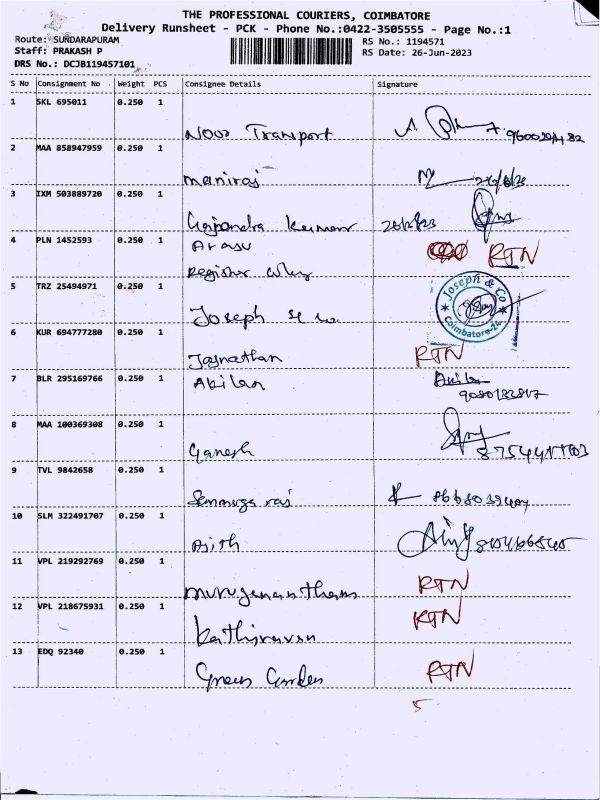 THE PROFESSIONAL COURIERS, COIMBATORE
Delivery Runsheet - PCK - Phone No.:0422-3505555 - Page No.:1
Route: SUNDARAPURAM
Staff: PRAKASH P
DRS No.: DCJB119457101
RS No.: 1194571
RS Date: 26-Jun-2023
S No Consignment No Weight PCS Consignee Details Signature
1 SKL 695011 0.250 1
Noor Transport
2 MAA 858947959 0.250 1
Maniraj
3 IXM 503889720 0.250 1
Gajendra Kumar
4 PLN 1452593 0.250 1
Arasu RTN
Register
5 TRZ 25494971 0.250 1
Joseph & Co
Joseph & Co
Coimbatore-24
6 KUR 694777280 0.250 1
Jagnathan RTN
7 BLR 295169766 0.250 1
Abilan
8 MAA 100369308 0.250 1
Ganesh
9 TVL 9842658 0.250 1
10 SLM 322491707 0.250 1
Ajith
11 VPL 219292769 0.250 1
Muruganantham RTN
12 VPL 218675931 0.250 1
Kathiravan RTN
13 EDQ 92340 0.250 1
Green Garden RTN
5